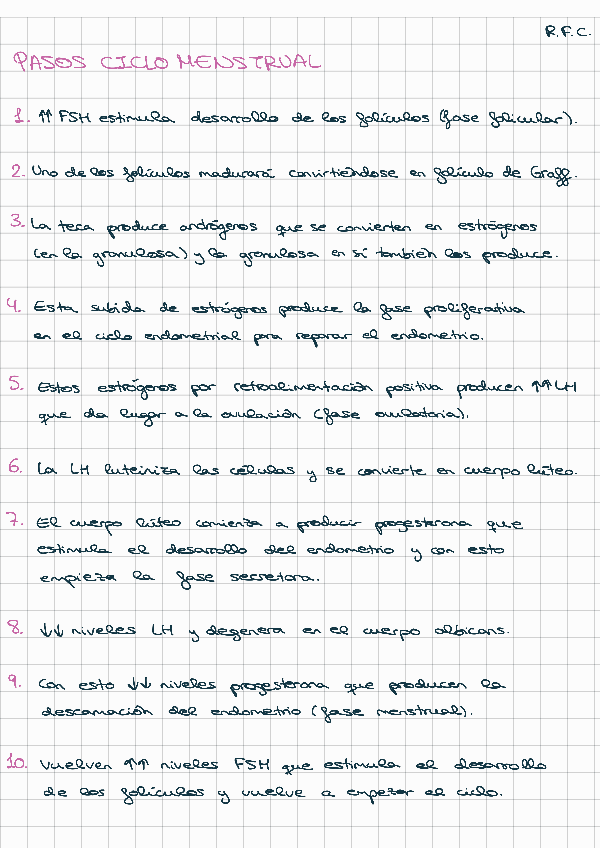 R.F.C.
PASOS CICLO MENSTRUAL
1. ↑↑ FSH estimula desarrollo de los folículos (fase folicular).
2. Uno de los folículos madurará convirtiéndose en folículo de Graff.
3. La teca produce andrógenos que se convierten en estrógenos
(en la granulosa) y la granulosa en sí también los produce.
4. Esta subida de estrógenos produce la fase proliferativa
en el ciclo endometrial para reparar el endometrio.
5. Estos estrógenos por retroalimentación positiva producen ↑↑ LH
que da lugar a la ovulación (fase ovulatoria).
6. La LH luteiniza las células y se convierte en cuerpo lúteo.
7. El cuerpo lúteo comienza a producir progesterona que
estimula el desarrollo del endometrio y con esto
empieza la fase secretora.
8. ↓↓ niveles LH y degenera en el cuerpo albicans.
9. Con esto ↓↓ niveles progesterona que producen la
descamación del endometrio (fase menstrual).
10. Vuelven ↑↑ niveles FSH que estimula el desarrollo
de los folículos y vuelve a empezar el ciclo.